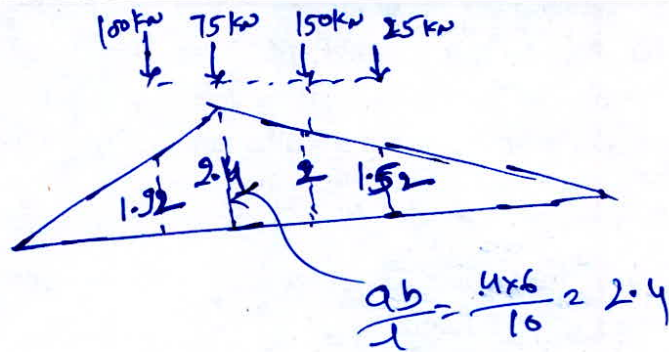 100kN 75kN 150kN 25kN
1.92 2.4 2 1.52
ab/l = 4x6/10 = 2.4